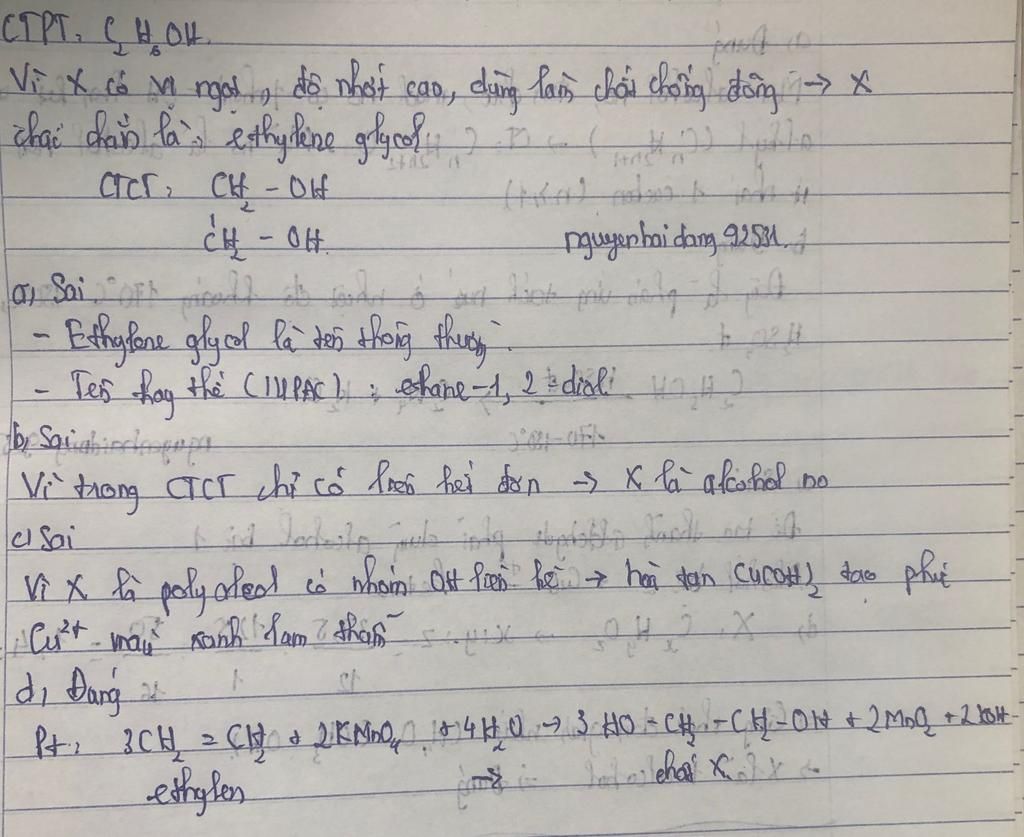 CTPT: C₂H₅OH.
Vì X có vị ngọt, độ nhớt cao, dùng làm chất chống đông → X
chắc chắn là: ethylene glycol
CTCT: CH₂ - OH
CH₂ - OH.
nguyenhaidang92531.
a, Sai
- Ethylene glycol là tên thông thường.
- Tên thay thế (IUPAC): ethane-1, 2-diol.
b, Sai
Vì trong CTCT chỉ có liên kết đơn → X là alcohol no
c, Sai
Vì X là polyalcol có nhóm OH liền kề → hoà tan Cu(OH)₂ tạo phức
Cu²⁺ màu xanh lam thẫm
d, Đúng
Pt: 3CH₂ = CH₂ + 2KMnO₄ + 4H₂O → 3 HO - CH₂ - CH₂ - OH + 2MnO₂ + 2KOH
ethylen → chất X.